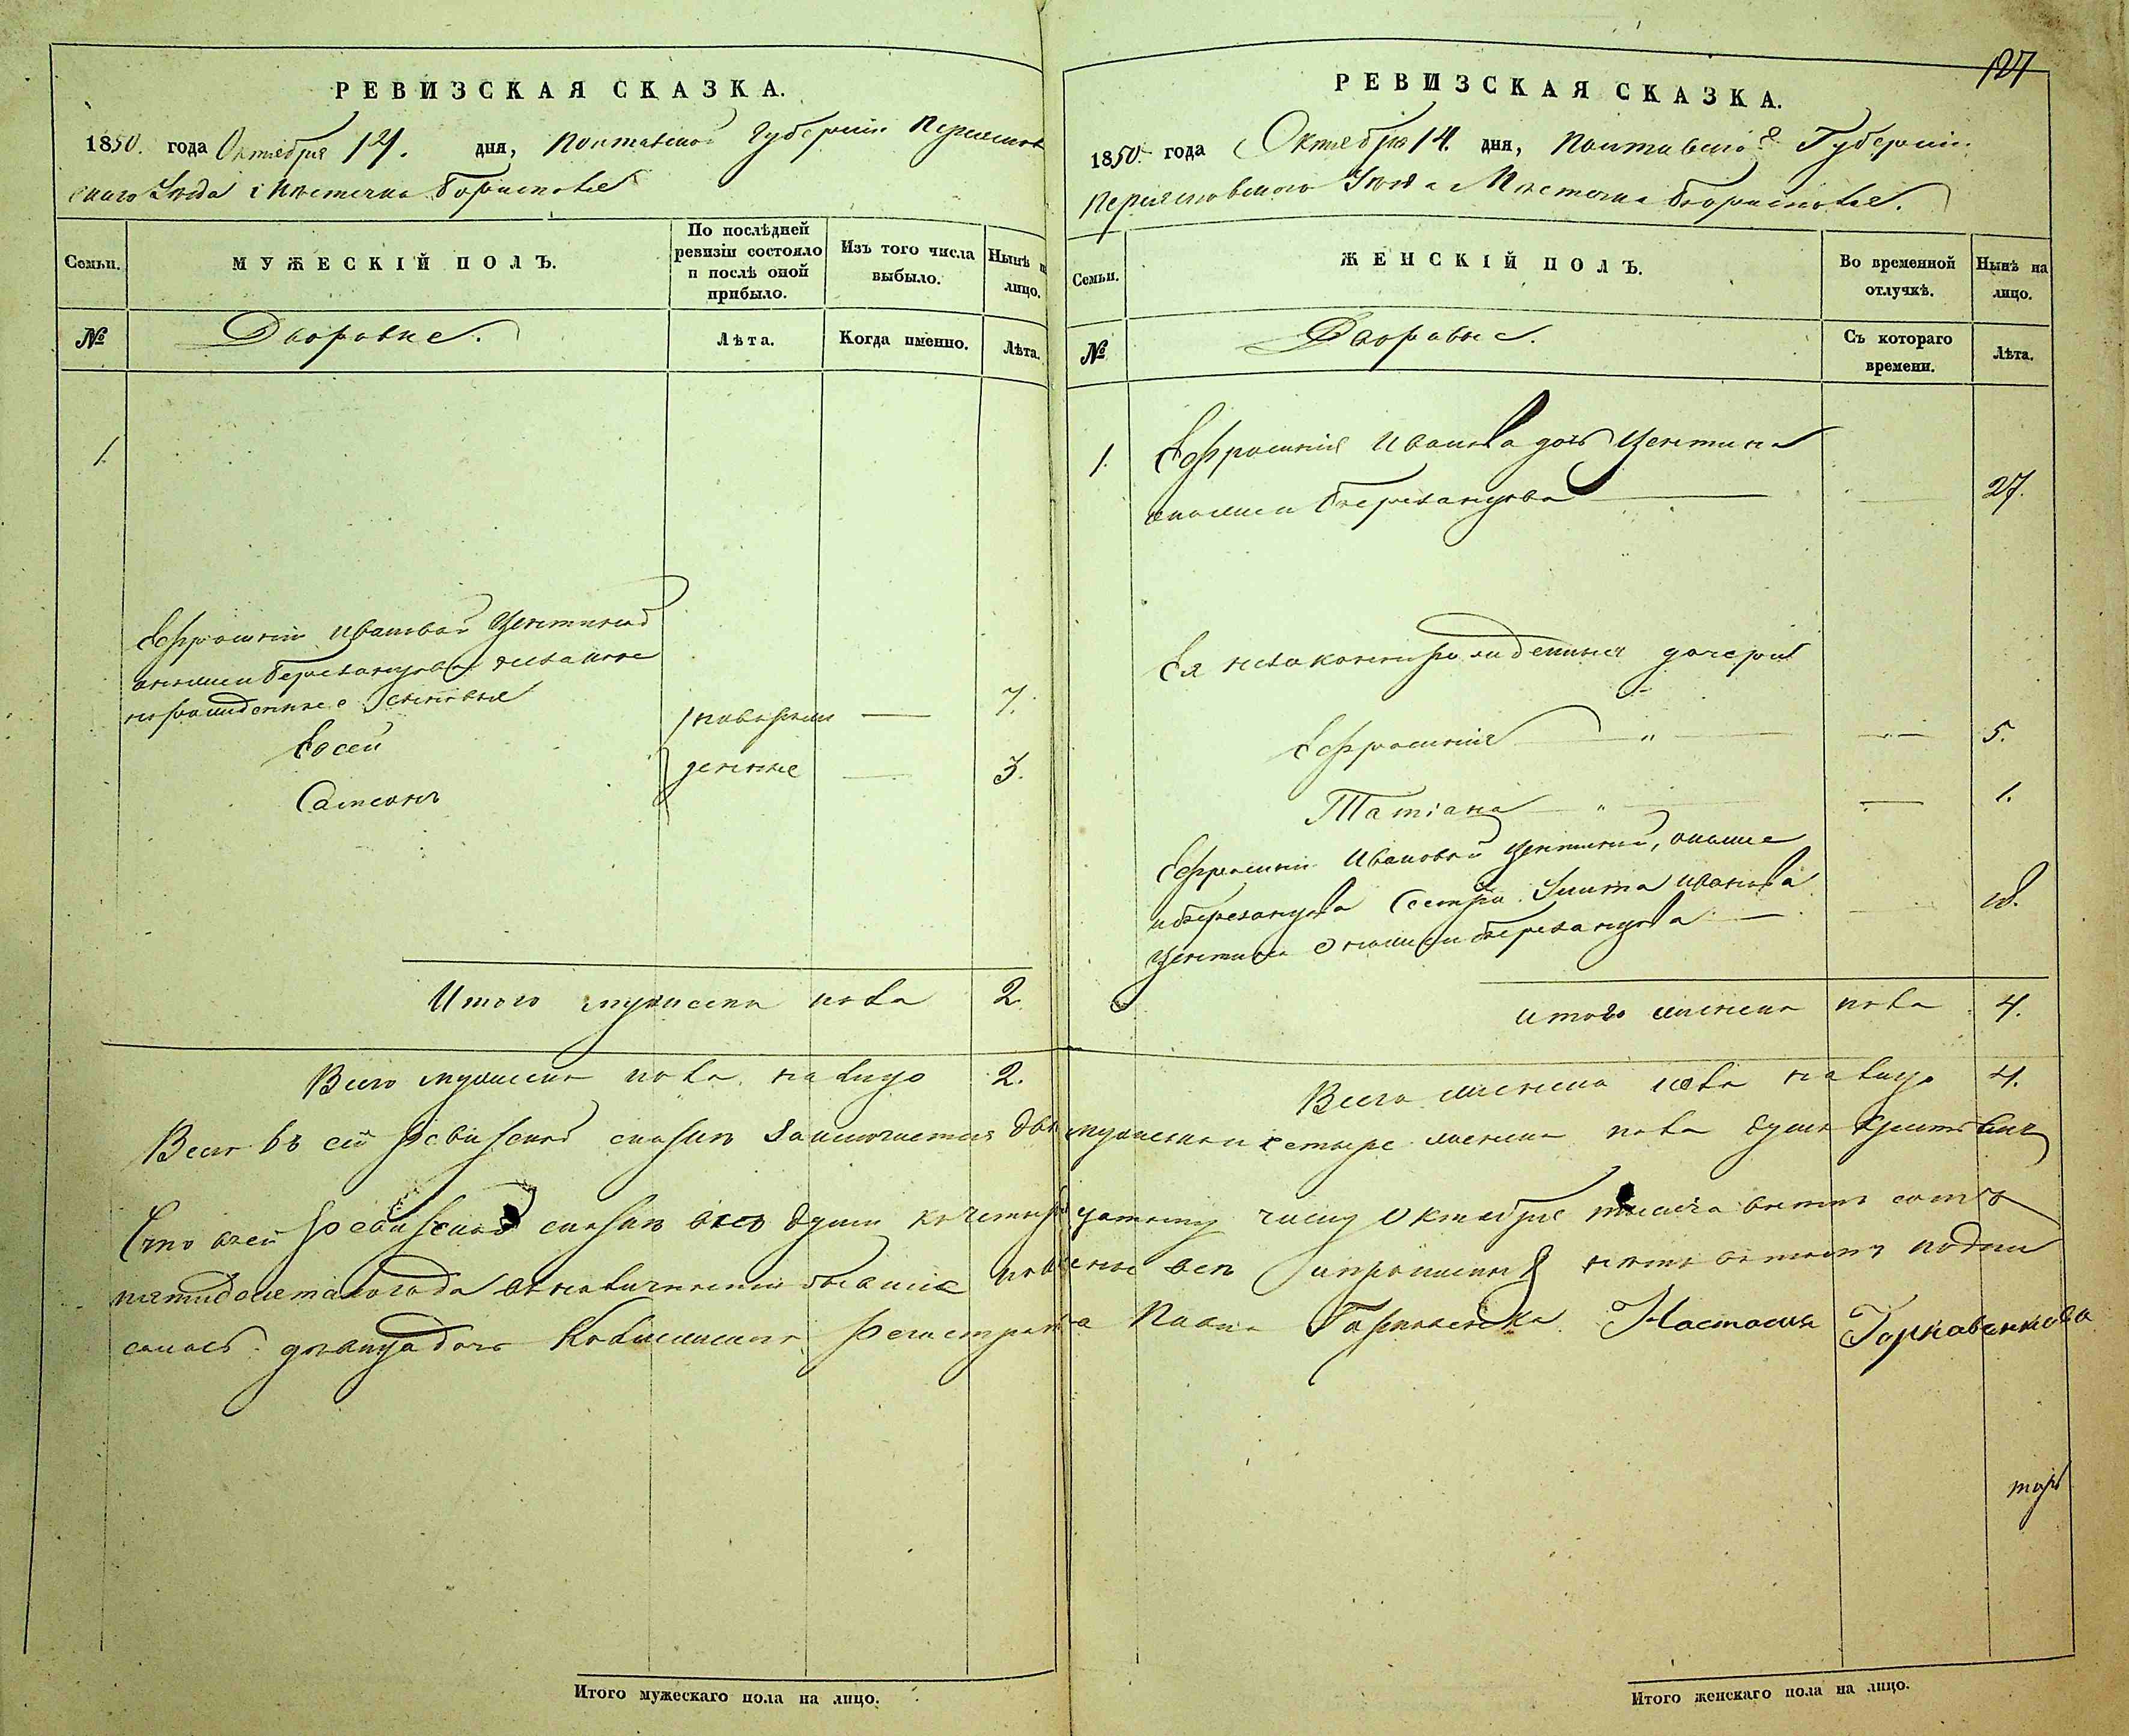 РЕВИЗСКАЯ СКАЗКА.
1850. года Октября 14. дня, Полтавской Губернии Переяслов
скаго Уезда Местечка Борисполя
Семьи.
МУЖЕСКІЙ ПОЛЪ.
По послѣдней ревизіи состояло и послѣ оной прибыло.
Изъ того числа выбыло.
Нынѣ на лицо.
№
Дворовые.
Лѣта.
Когда именно.
Лѣта.
1.
Ефросиніи Ивановой
незаконно
рожденные Сыновья
Евсей
новорож 7.
Самсонъ
денные 3.
Итого мужеска пола 2.
Всего мужеска пола на лицо 2.
Итого мужескаго пола на лицо.
127
РЕВИЗСКАЯ СКАЗКА.
1850. года Октября 14. дня, Полтавской Губерніи
Переясловского Уезда Местечка Борисполя.
Семьи.
ЖЕНСКІЙ ПОЛЪ.
Во временной отлучкѣ.
Нынѣ на лицо.
№
Дворовые.
Съ котораго времени.
Лѣта.
1.
Ефросинія Иванова дочь
27.
Ея незаконнорожденныя дочери
Ефросинія " 5.
Татіана " 1.
Ефросиніи Ивановой
Сестра Улита Иванова
18.
Итого женска пола 4.
Всего женска пола на лицо 4.
Всего въ сей ревизской сказке заключается два мужеска и четыре женска пола душъ
Что в сей ревизской сказке все души к четырнадцатому числу Октября тысяча восемь сотъ
пятидесятого года в наличности бывшие показаны все и прописных нетъ в томъ подпи
салась девица дочь Колежского Регистратора Павла Настасия Горковенкова
Итого женскаго пола на лицо.